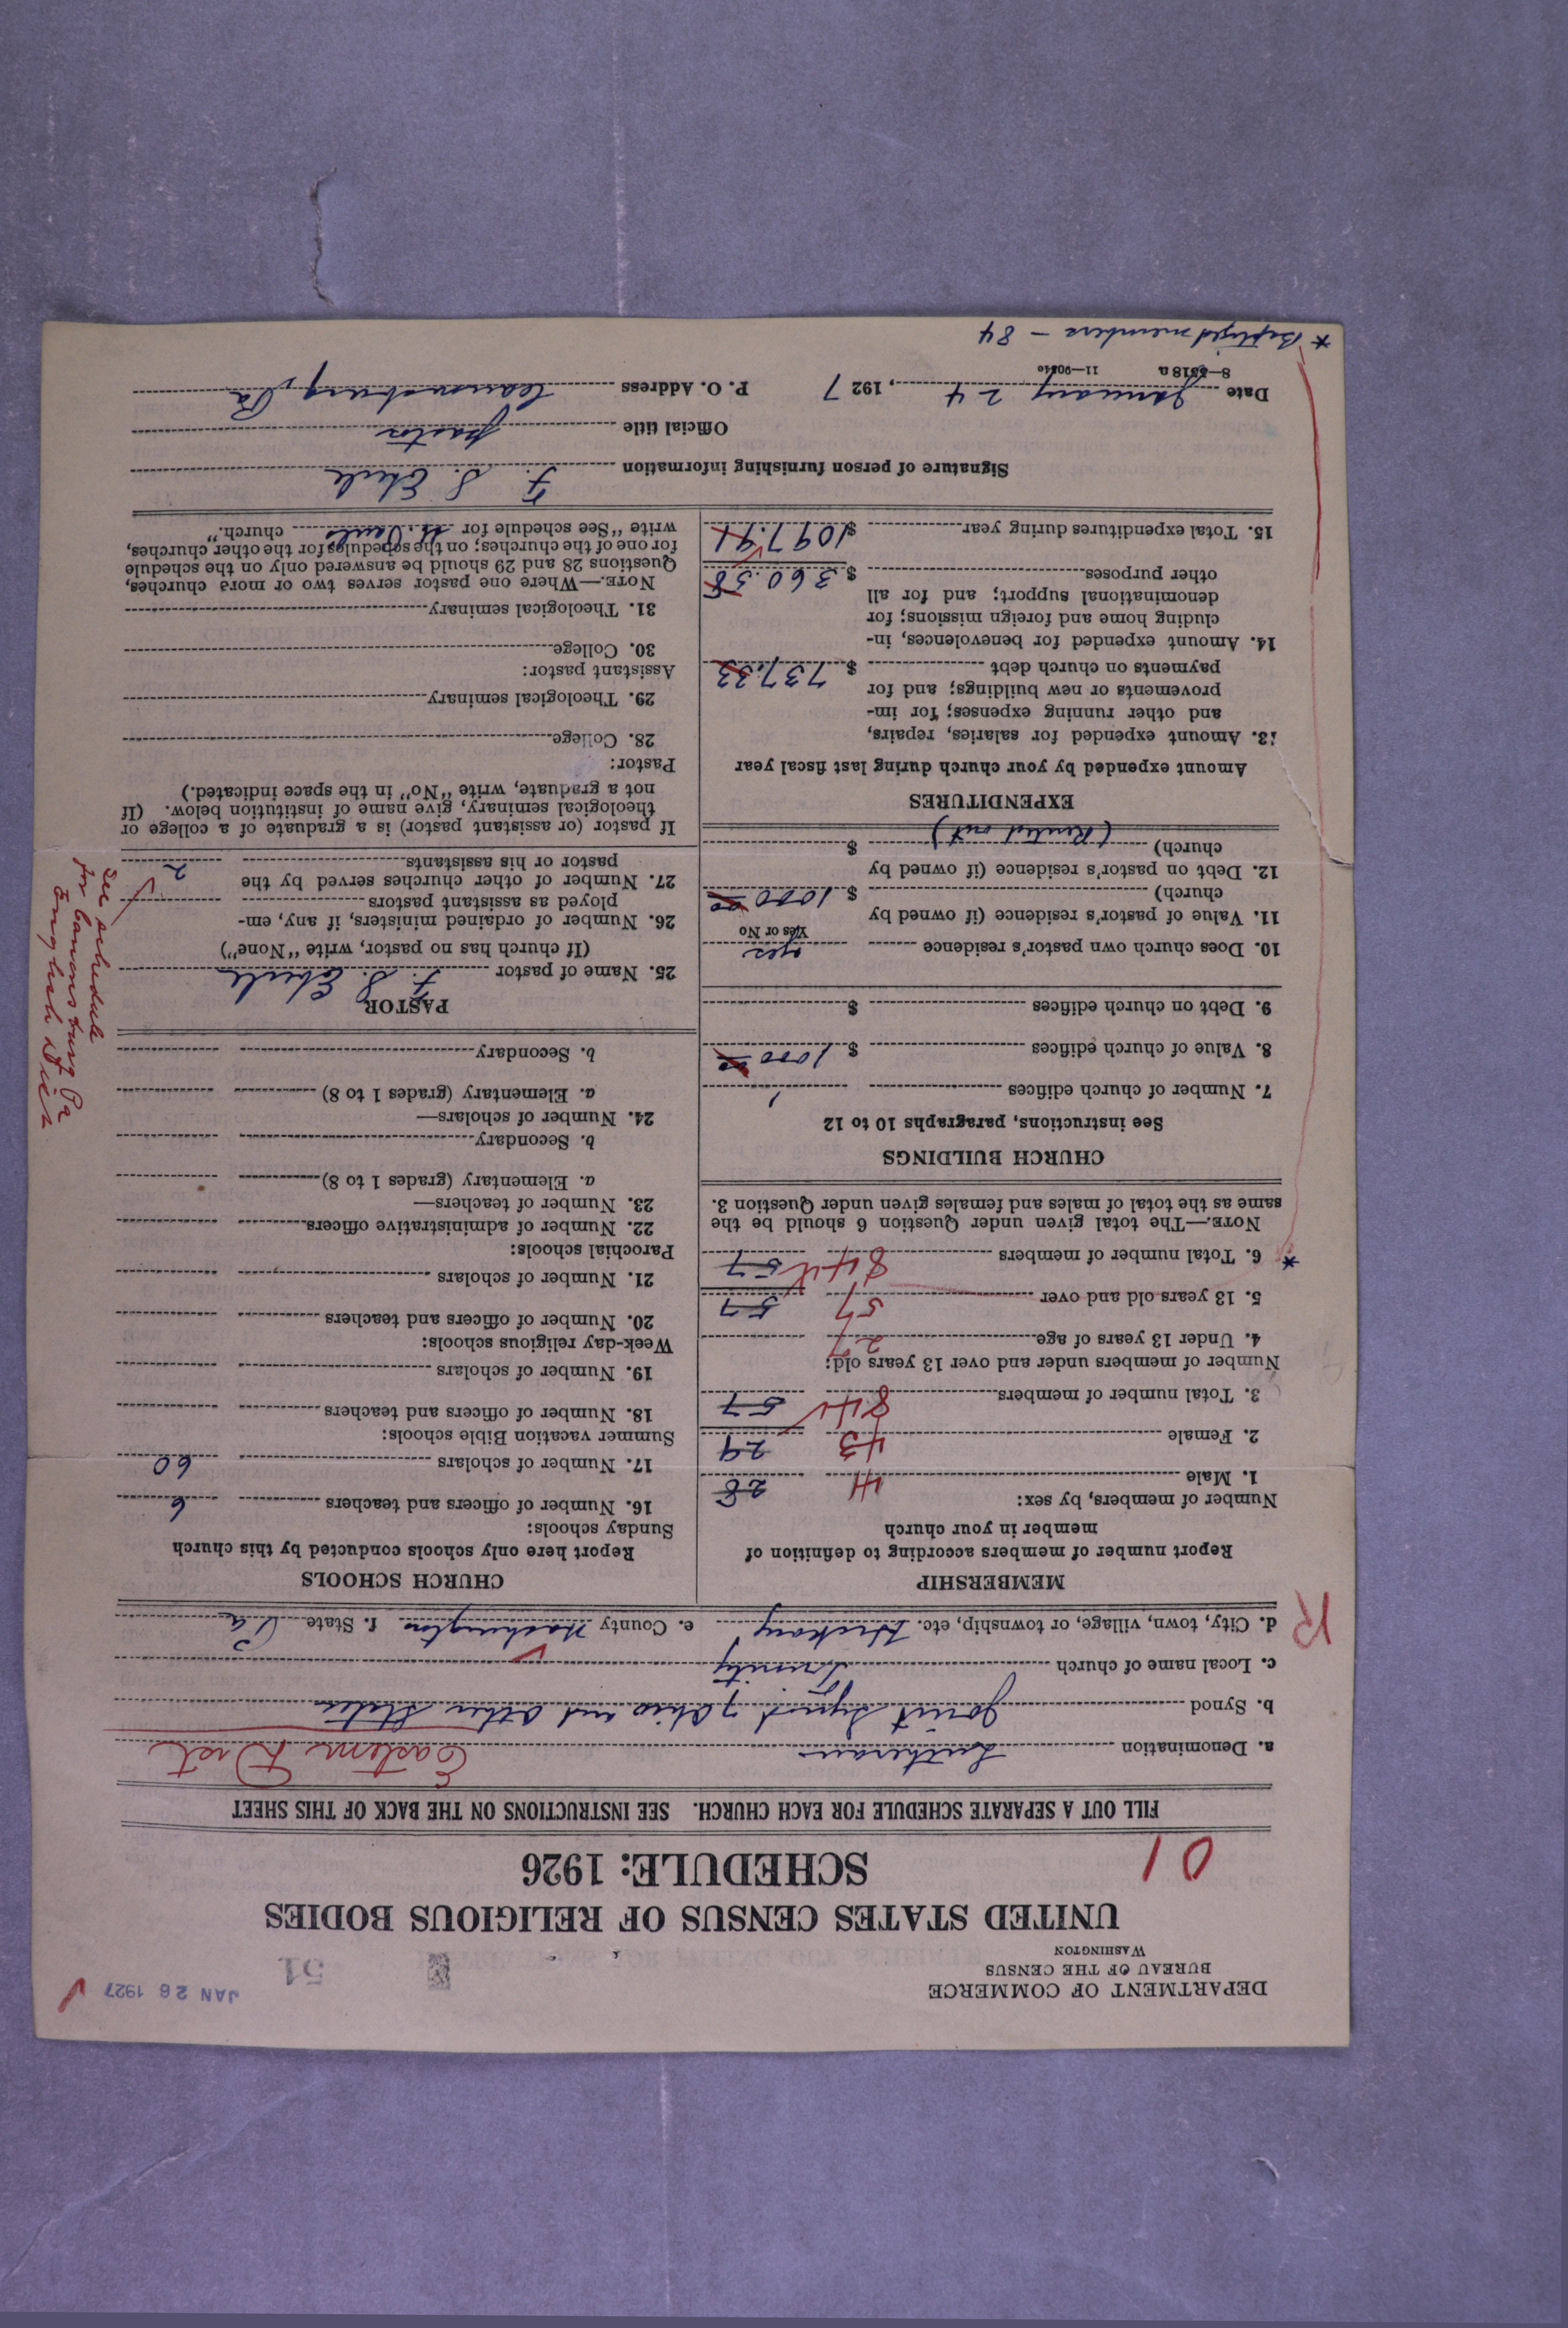 DEPARTMENT OF COMMERCE
BUREAU OF THE CENSUS
WASHINGTON
JAN 26 1927
51
UNITED STATES CENSUS OF RELIGIOUS BODIES
SCHEDULE: 1926
01
FILL OUT A SEPARATE SCHEDULE FOR EACH CHURCH. SEE INSTRUCTIONS ON THE BACK OF THIS SHEET
a. Denomination Lutheran Eastern Dist
b. Synod Joint Synod of Ohio and other States
c. Local name of church Trinity
d. City, town, village, or township, etc. Hickory e. County Washington f. State Pa
R
MEMBERSHIP
Report number of members according to definition of
member in your church
Number of members, by sex:
1. Male 41 28
2. Female 43 29
3. Total number of members 84 57
Number of members under and over 13 years old:
4. Under 13 years of age 27
5. 13 years old and over 57 57
* 6. Total number of members 84 57
NOTE.—The total given under Question 6 should be the
same as the total of males and females given under Question 3.
CHURCH BUILDINGS
See instructions, paragraphs 10 to 12
7. Number of church edifices 1
8. Value of church edifices $ 1000 00
9. Debt on church edifices $
10. Does church own pastor's residence yes
Yes or No
11. Value of pastor's residence (if owned by
church) $ 1000 00
12. Debt on pastor's residence (if owned by
church) (Rented out) $
EXPENDITURES
Amount expended by your church during last fiscal year
13. Amount expended for salaries, repairs,
and other running expenses; for im-
provements or new buildings; and for
payments on church debt $ 737.33
14. Amount expended for benevolences, in-
cluding home and foreign missions; for
denominational support; and for all
other purposes $ 360.58
15. Total expenditures during year $ 1097.91
CHURCH SCHOOLS
Report here only schools conducted by this church
Sunday schools:
16. Number of officers and teachers 6
17. Number of scholars 60
Summer vacation Bible schools:
18. Number of officers and teachers
19. Number of scholars
Week-day religious schools:
20. Number of officers and teachers
21. Number of scholars
Parochial schools:
22. Number of administrative officers
23. Number of teachers—
a. Elementary (grades 1 to 8)
b. Secondary
24. Number of scholars—
a. Elementary (grades 1 to 8)
b. Secondary
PASTOR
25. Name of pastor F. S. Eberle
(If church has no pastor, write "None")
26. Number of ordained ministers, if any, em-
ployed as assistant pastors
27. Number of other churches served by the
pastor or his assistants 2
See schedule
for Canonsburg Pa
If pastor (or assistant pastor) is a graduate of a college or
theological seminary, give name of institution below. (If
not a graduate, write "No" in the space indicated.)
Pastor:
28. College
29. Theological seminary
Assistant pastor:
30. College
31. Theological seminary
NOTE.—Where one pastor serves two or more churches,
Questions 28 and 29 should be answered only on the schedule
for one of the churches; on the schedules for the other churches,
write "See schedule for St. Pauls church."
Signature of person furnishing information F. S. Eberle
Official title pastor
Date January 24, 1927 P. O. Address Canonsburg, Pa
8—5518 a 11—9051e
* Baptized members - 84